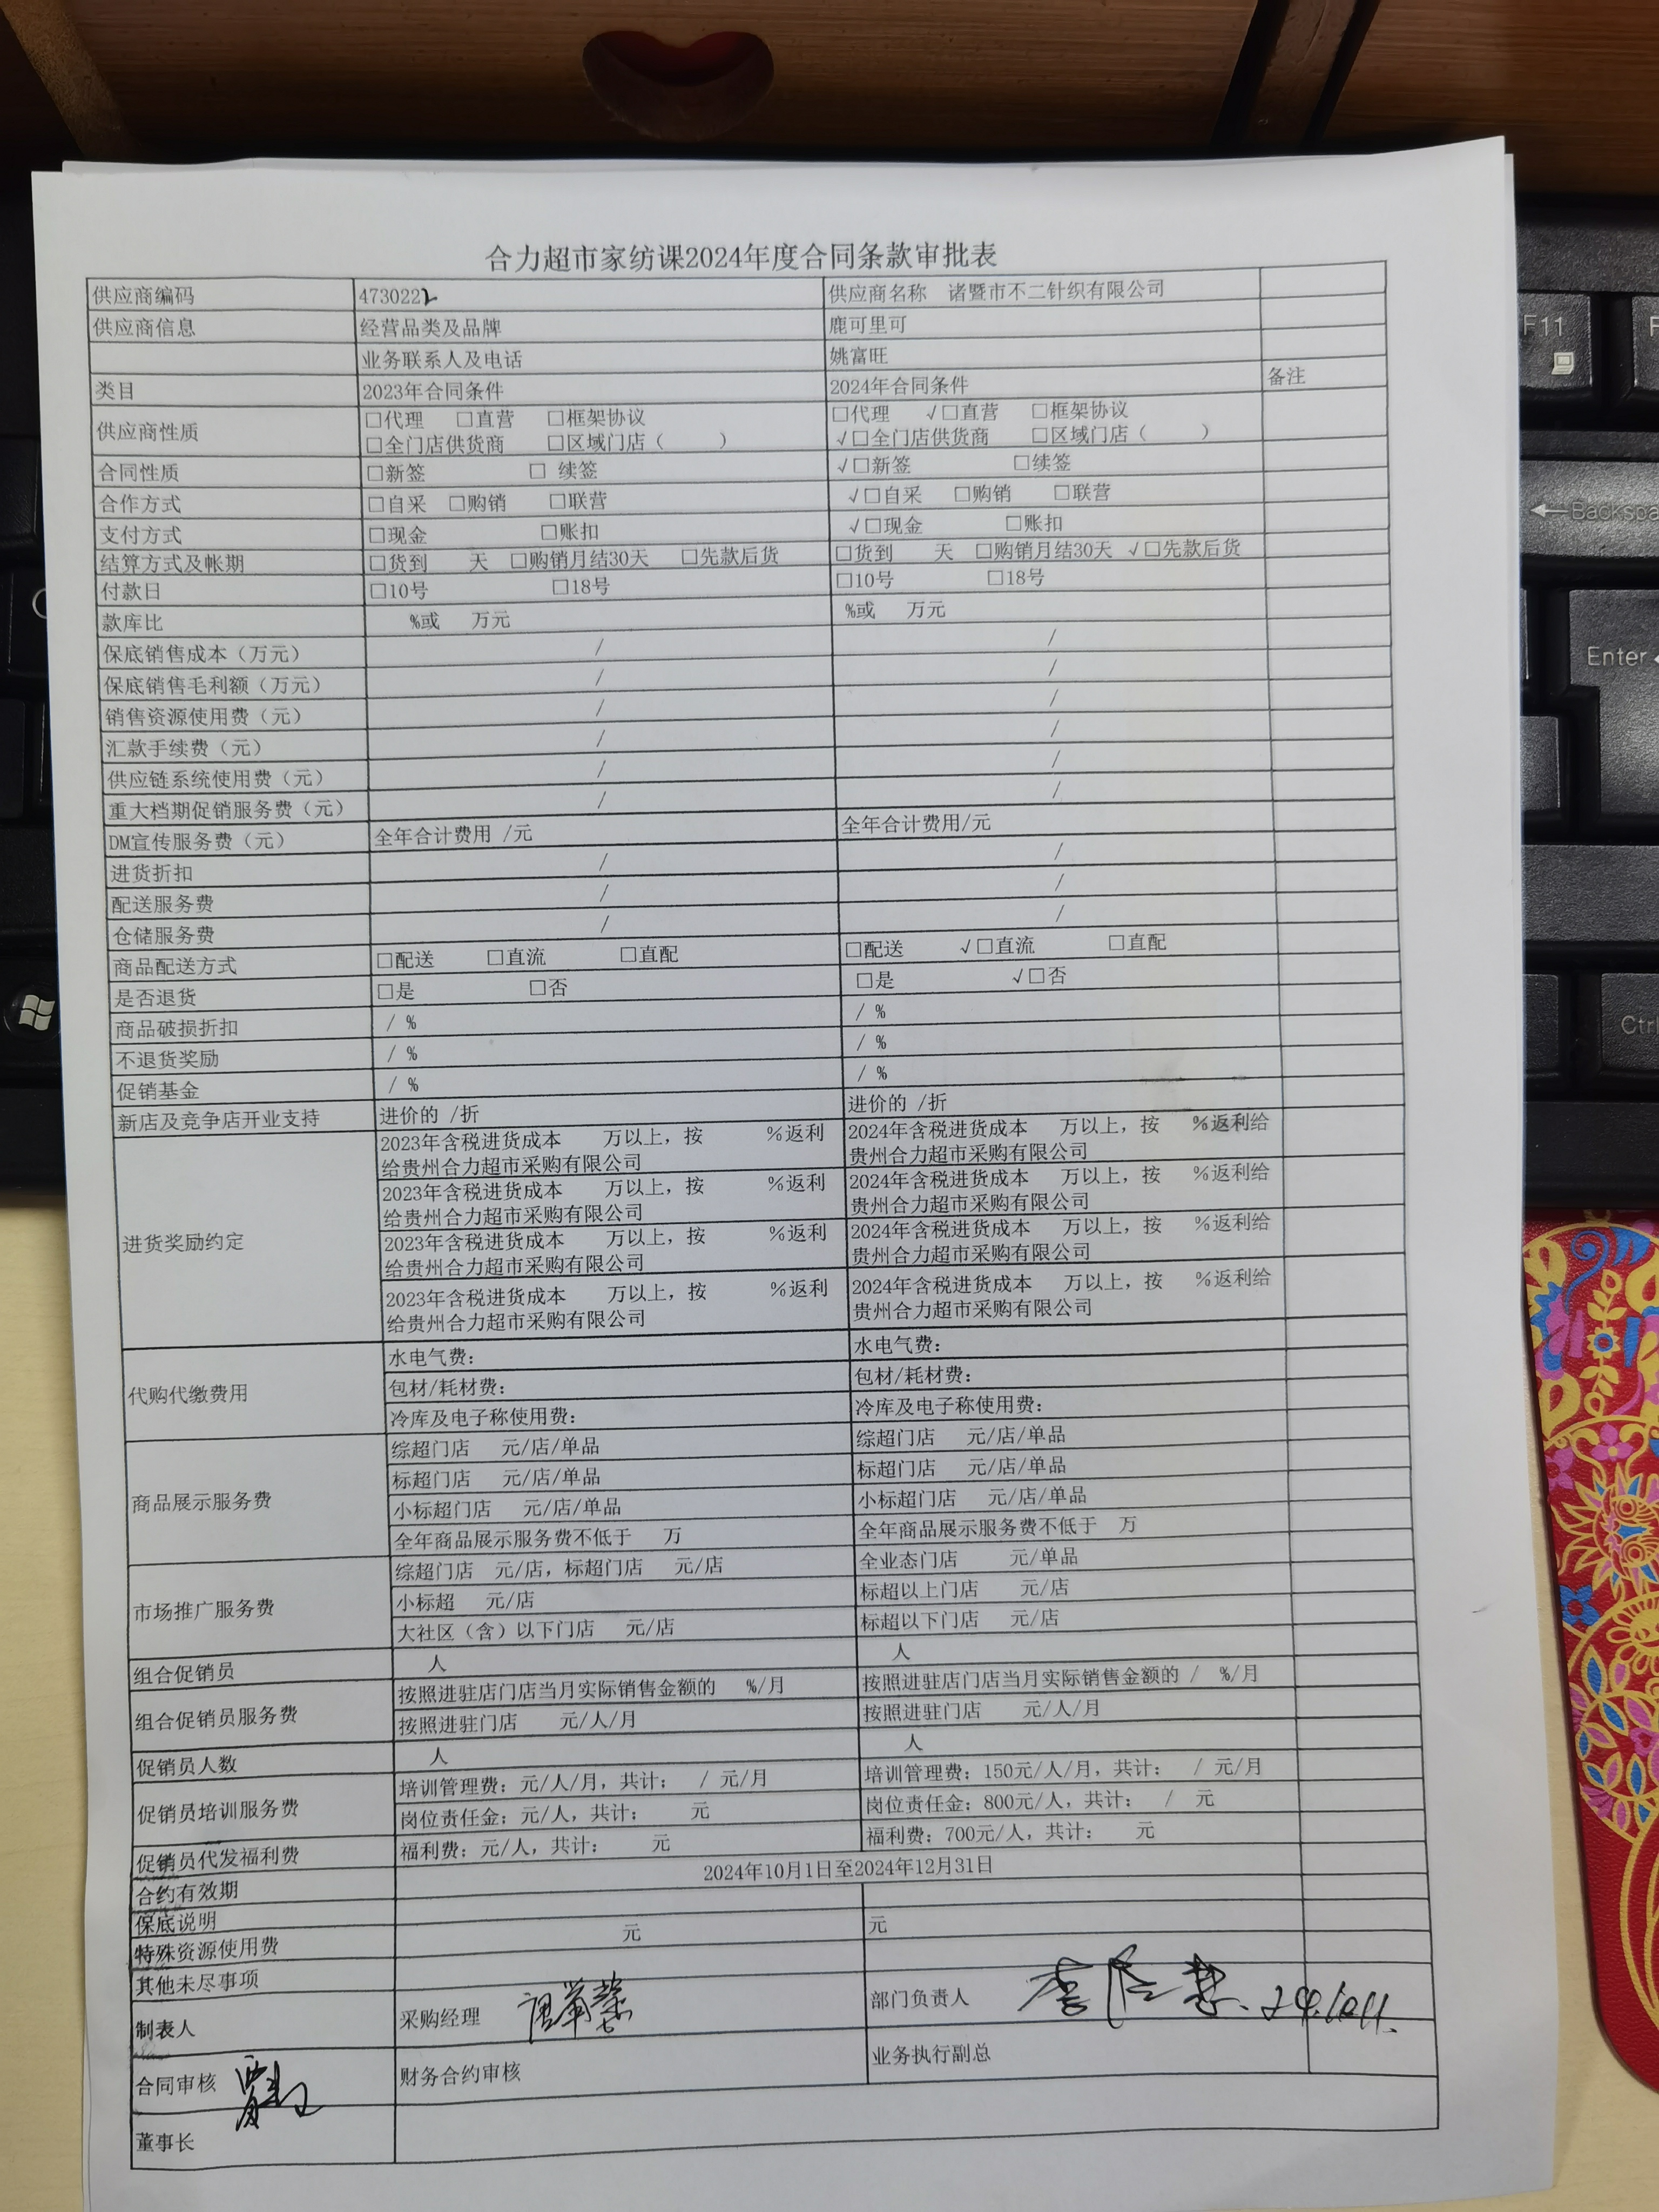 合力超市家纺课2024年度合同条款审批表
供应商编码 4730222 供应商名称 诸暨市不二针织有限公司
供应商信息 经营品类及品牌 鹿可里可
业务联系人及电话 姚富旺
类目 2023年合同条件 2024年合同条件 备注
供应商性质 □代理 □直营 □框架协议 □代理 √□直营 □框架协议
□全门店供货商 □区域门店( ) √□全门店供货商 □区域门店( )
合同性质 □新签 □ 续签 √□新签 □续签
合作方式 □自采 □购销 □联营 √□自采 □购销 □联营
支付方式 □现金 □账扣 √□现金 □账扣
结算方式及帐期 □货到 天 □购销月结30天 □先款后货 □货到 天 □购销月结30天 √□先款后货
付款日 □10号 □18号 □10号 □18号
款库比 %或 万元 %或 万元
保底销售成本(万元) / /
保底销售毛利额(万元) / /
销售资源使用费(元) / /
汇款手续费(元) / /
供应链系统使用费(元) / /
重大档期促销服务费(元) / /
DM宣传服务费(元) 全年合计费用 /元 全年合计费用/元
进货折扣 / /
配送服务费 / /
仓储服务费 / /
商品配送方式 □配送 □直流 □直配 □配送 √□直流 □直配
是否退货 □是 □否 □是 √□否
商品破损折扣 / % / %
不退货奖励 / % / %
促销基金 / % / %
新店及竞争店开业支持 进价的 /折 进价的 /折
进货奖励约定
2023年含税进货成本 万以上，按 %返利 2024年含税进货成本 万以上，按 %返利给
给贵州合力超市采购有限公司 贵州合力超市采购有限公司
2023年含税进货成本 万以上，按 %返利 2024年含税进货成本 万以上，按 %返利给
给贵州合力超市采购有限公司 贵州合力超市采购有限公司
2023年含税进货成本 万以上，按 %返利 2024年含税进货成本 万以上，按 %返利给
给贵州合力超市采购有限公司 贵州合力超市采购有限公司
2023年含税进货成本 万以上，按 %返利 2024年含税进货成本 万以上，按 %返利给
给贵州合力超市采购有限公司 贵州合力超市采购有限公司
代购代缴费用
水电气费： 水电气费：
包材/耗材费： 包材/耗材费：
冷库及电子称使用费： 冷库及电子称使用费：
商品展示服务费
综超门店 元/店/单品 综超门店 元/店/单品
标超门店 元/店/单品 标超门店 元/店/单品
小标超门店 元/店/单品 小标超门店 元/店/单品
全年商品展示服务费不低于 万 全年商品展示服务费不低于 万
市场推广服务费
综超门店 元/店，标超门店 元/店 全业态门店 元/单品
小标超 元/店 标超以上门店 元/店
大社区(含)以下门店 元/店 标超以下门店 元/店
组合促销员 人 人
组合促销员服务费
按照进驻店门店当月实际销售金额的 %/月 按照进驻店门店当月实际销售金额的 / %/月
按照进驻门店 元/人/月 按照进驻门店 元/人/月
促销员人数 人 人
促销员培训服务费
培训管理费：元/人/月，共计： / 元/月 培训管理费：150元/人/月，共计： / 元/月
岗位责任金：元/人，共计： 元 岗位责任金：800元/人，共计： / 元
促销员代发福利费 福利费：元/人，共计： 元 福利费：700元/人，共计： 元
合约有效期 2024年10月1日至2024年12月31日
保底说明
特殊资源使用费 元 元
其他未尽事项
制表人 采购经理 部门负责人
合同审核 财务合约审核 业务执行副总
董事长
F11
Backspa
Enter
Ctrl